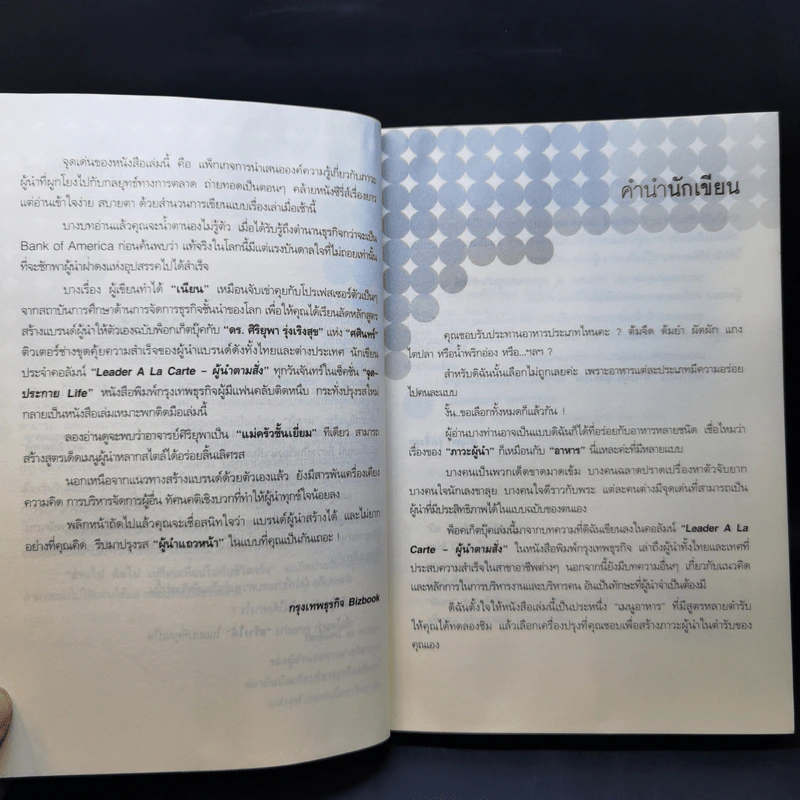 จุดเด่นของหนังสือเล่มนี้ คือ แพ็กเกจการนำเสนอองค์ความรู้เกี่ยวกับภาวะ
ผู้นำที่ผูกโยงไปกับกลยุทธ์ทางการตลาด ถ่ายทอดเป็นตอนๆ คล้ายหนังซีรี่ส์เรื่องยาว
แต่อ่านเข้าใจง่าย สบายตา ด้วยสำนวนการเขียนแบบเรื่องเล่าเมื่อเช้านี้
บางบทอ่านแล้วคุณจะน้ำตานองไม่รู้ตัว เมื่อได้รับรู้ถึงตำนานธุรกิจกว่าจะเป็น
Bank of America ก่อนค้นพบว่า แท้จริงในโลกนี้มีแต่แรงบันดาลใจที่ไม่ถอยเท่านั้น
ที่จะชักพาผู้นำฝ่าดงแห่งอุปสรรคไปได้สำเร็จ
บางเรื่อง ผู้เขียนทำได้ "เนียน" เหมือนจับเข่าคุยกับโปรเฟสเซอร์ตัวเป็นๆ
จากสถาบันการศึกษาด้านการจัดการธุรกิจชั้นนำของโลก เพื่อให้คุณได้เรียนลัดหลักสูตร
สร้างแบรนด์ผู้นำให้ตัวเองฉบับพ็อกเก็ตบุ๊คกับ "ดร. ศิริยุพา รุ่งเริงสุข" แห่ง "ศศินทร์"
ติวเตอร์ช่างขุดคุ้ยความสำเร็จของผู้นำแบรนด์ดังทั้งไทยและต่างประเทศ นักเขียน
ประจำคอลัมน์ "Leader A La Carte – ผู้นำตามสั่ง" ทุกวันจันทร์ในเซ็คชั่น "จุด-
ประกาย Life" หนังสือพิมพ์กรุงเทพธุรกิจผู้มีแฟนคลับติดหนึบ กระทั่งปรุงรสใหม่
กลายเป็นหนังสือเล่มเหมาะพกติดมือเล่มนี้
ลองอ่านดูจะพบว่าอาจารย์ศิริยุพาเป็น "แม่ครัวชั้นเยี่ยม" ทีเดียว สามารถ
สร้างสูตรเด็ดเมนูผู้นำหลากสไตล์ได้อร่อยลิ้นเลิศรส
นอกเหนือจากแนวทางสร้างแบรนด์ด้วยตัวเองแล้ว ยังมีสารพันเครื่องเคียง
ความคิด การบริหารจัดการผู้อื่น ทัศนคติเชิงบวกที่ทำให้ผู้นำทุกข์ใจน้อยลง
พลิกหน้าถัดไปแล้วคุณจะเชื่อสนิทใจว่า แบรนด์ผู้นำสร้างได้ และไม่ยาก
อย่างที่คุณคิด รีบมาปรุงรส "ผู้นำแถวหน้า" ในแบบที่คุณเป็นกันเถอะ !
กรุงเทพธุรกิจ Bizbook
คำนำนักเขียน
คุณชอบรับประทานอาหารประเภทไหนคะ ? ต้มจืด ต้มยำ ผัดผัก แกง
ไตปลา หรือน้ำพริกอ่อง หรือ...ฯลฯ ?
สำหรับดิฉันนั้นเลือกไม่ถูกเลยค่ะ เพราะอาหารแต่ละประเภทมีความอร่อย
ไปคนละแบบ
งั้น..ขอเลือกทั้งหมดก็แล้วกัน !
ผู้อ่านบางท่านอาจเป็นแบบดิฉันก็ได้ที่อร่อยกับอาหารหลายชนิด เชื่อไหมว่า
เรื่องของ "ภาวะผู้นำ" ก็เหมือนกับ "อาหาร" นี่แหละค่ะที่มีหลายแบบ
บางคนเป็นพวกเด็ดขาดมาดเข้ม บางคนฉลาดปราดเปรื่องหาตัวจับยาก
บางคนใจนักเลงขาลุย บางคนใจดีราวกับพระ แต่ละคนต่างมีจุดเด่นที่สามารถเป็น
ผู้นำที่มีประสิทธิภาพได้ในแบบฉบับของตนเอง
พ็อคเก็ตบุ๊คเล่มนี้มาจากบทความที่ดิฉันเขียนลงในคอลัมน์ "Leader A La
Carte – ผู้นำตามสั่ง" ในหนังสือพิมพ์กรุงเทพธุรกิจ เล่าถึงผู้นำทั้งไทยและเทศที่
ประสบความสำเร็จในสาขาอาชีพต่างๆ นอกจากนี้ยังมีบทความอื่นๆ เกี่ยวกับแนวคิด
และหลักการในการบริหารงานและบริหารคน อันเป็นทักษะที่ผู้นำจำเป็นต้องมี
ดิฉันตั้งใจให้หนังสือเล่มนี้เป็นประหนึ่ง "เมนูอาหาร" ที่มีสูตรหลายตำรับ
ให้คุณได้ทดลองชิม แล้วเลือกเครื่องปรุงที่คุณชอบเพื่อสร้างภาวะผู้นำในตำรับของ
คุณเอง